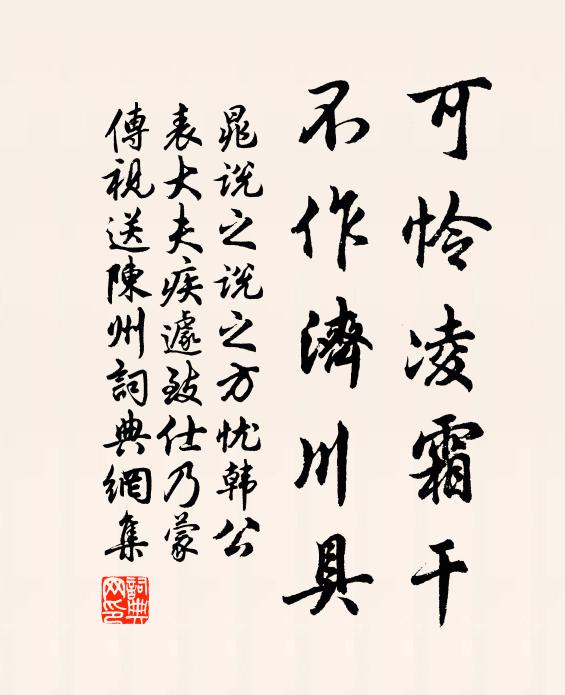 可怜凌霜干
不作濟川具
晁说之说之方忧韩公
表大夫疾遽致仕乃蒙
傳視送陳州詞典網集
詞典网印